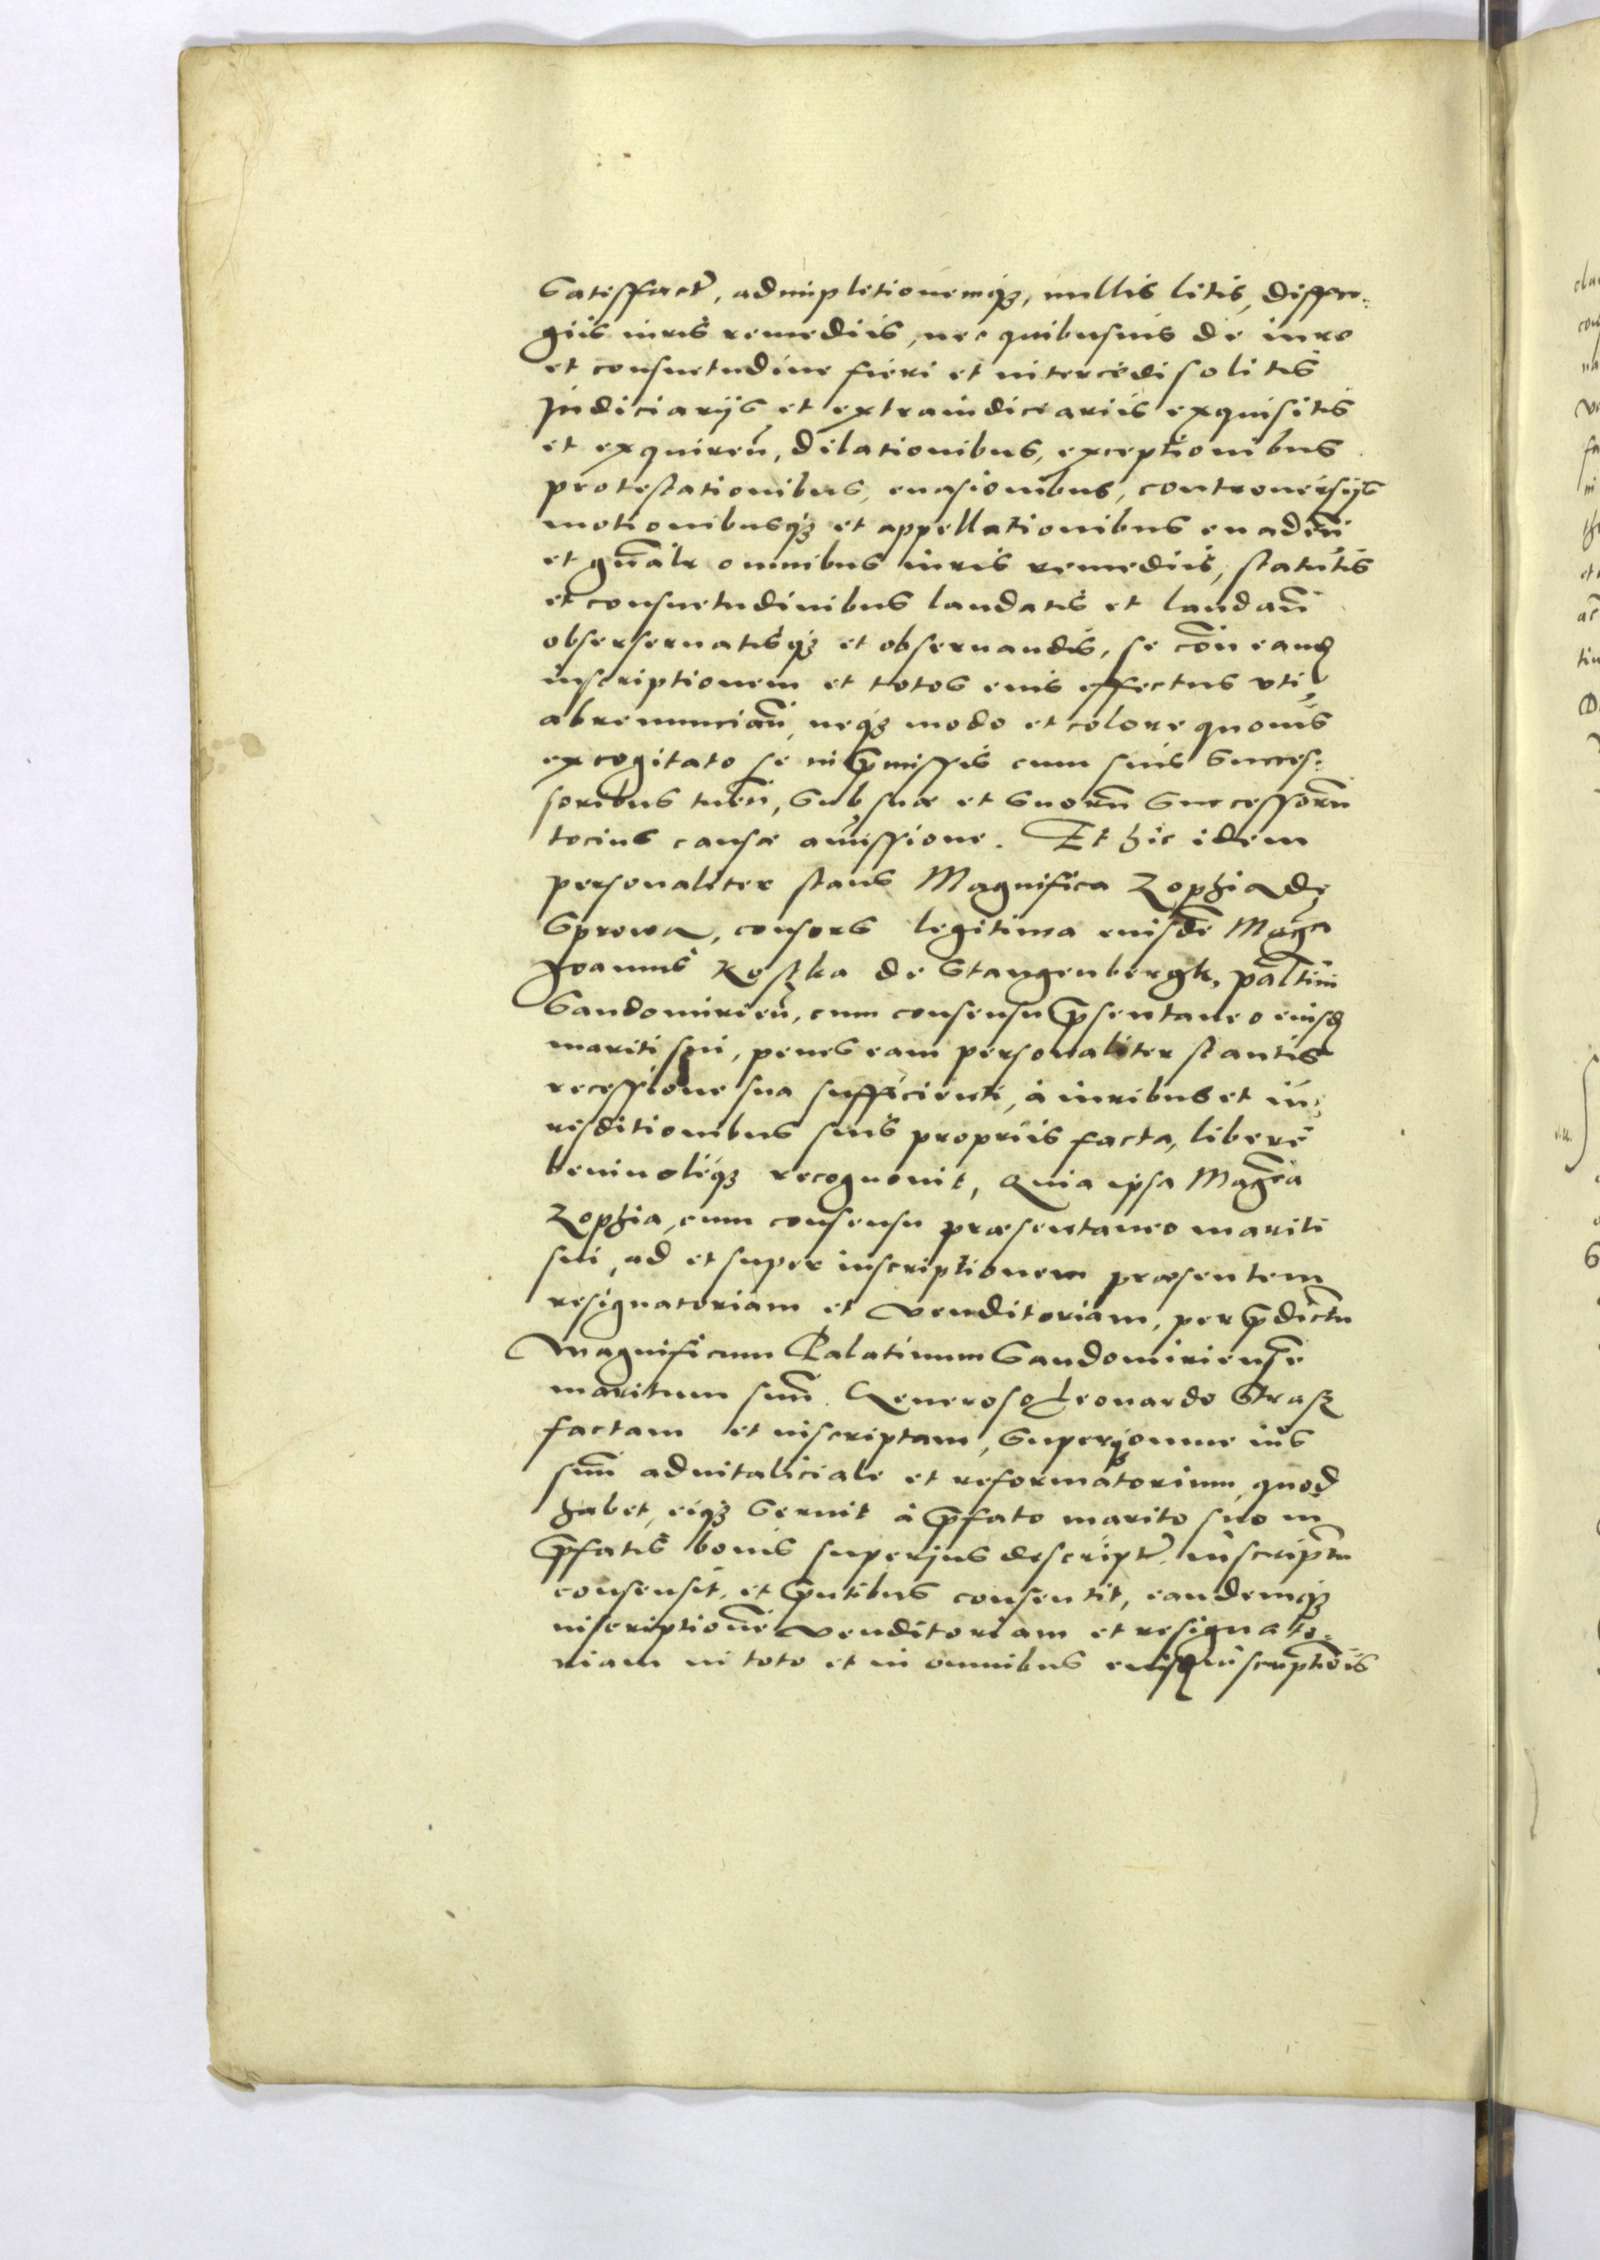 Satisffact̃, adimpletionemq̃, nullis litis, diffu-
giis iuris remediis, nec quibusuis de iure
et consuetudine fieri et intercedi solitis
Judiciarijs et extraiudiciariis exquisitis
et exquireñ, dilationibus, exceptionibus
protestationibus, euasionibus, controuersijs
motionibusq̃ et appellationibus euadeñ
et gnãlr omnibus iuris remediis, statutis
et consuetudinibus laudatis et laudañ
obsersernatisq̃ et obseruandis, se coñ eand̃
inscriptionem et totos eius effectus vti,
abrenuncian̄, neq̃ modo et colore quouis
excogitato se in p̃missis cum suis Succes-
soribus tueñ, Sub suæ et Suorũ Successorũ
tocius causæ amissione. Et hic idem
personaliter stans Magnifica Zophia de
Sprowa, consors legitima eiusdẽ Magci
Joannis Kostka de Stangenbergk, palt̃ini
Sandomirieñ, cum consensu p̃sentaneo eiusd̃
mariti sui, penes eam personaliter stantis
recessione sua sufficienti, à iuribus et iu-
risditionibus suis propriis facta, libere
beniuoléq̃ recognouit, Quia ipsa Magcã
Zophia, cum consensu præsentaneo mariti
sui, ad et super inscriptionem præsentem
resignatoriam et venditoriam, per p̃dictũ
Magnificum Palatinum Sandomiriensẽ
maritum suũ. Generoso Leonardo Strasz
factam et inscriptam, Superq̃ omne ius
suũ aduitaliciale et reformatorium, quod
habet, eiq̃ Seruit à p̃fato marito suo in
p̃fatis bonis superius descript̃. inscriptũ
consensit, et p̃ntibus consentit, eandemq̃
inscriptionẽ venditoriam et resignato-
riam in toto et in omnibus eiusd̃ inscriptiõis